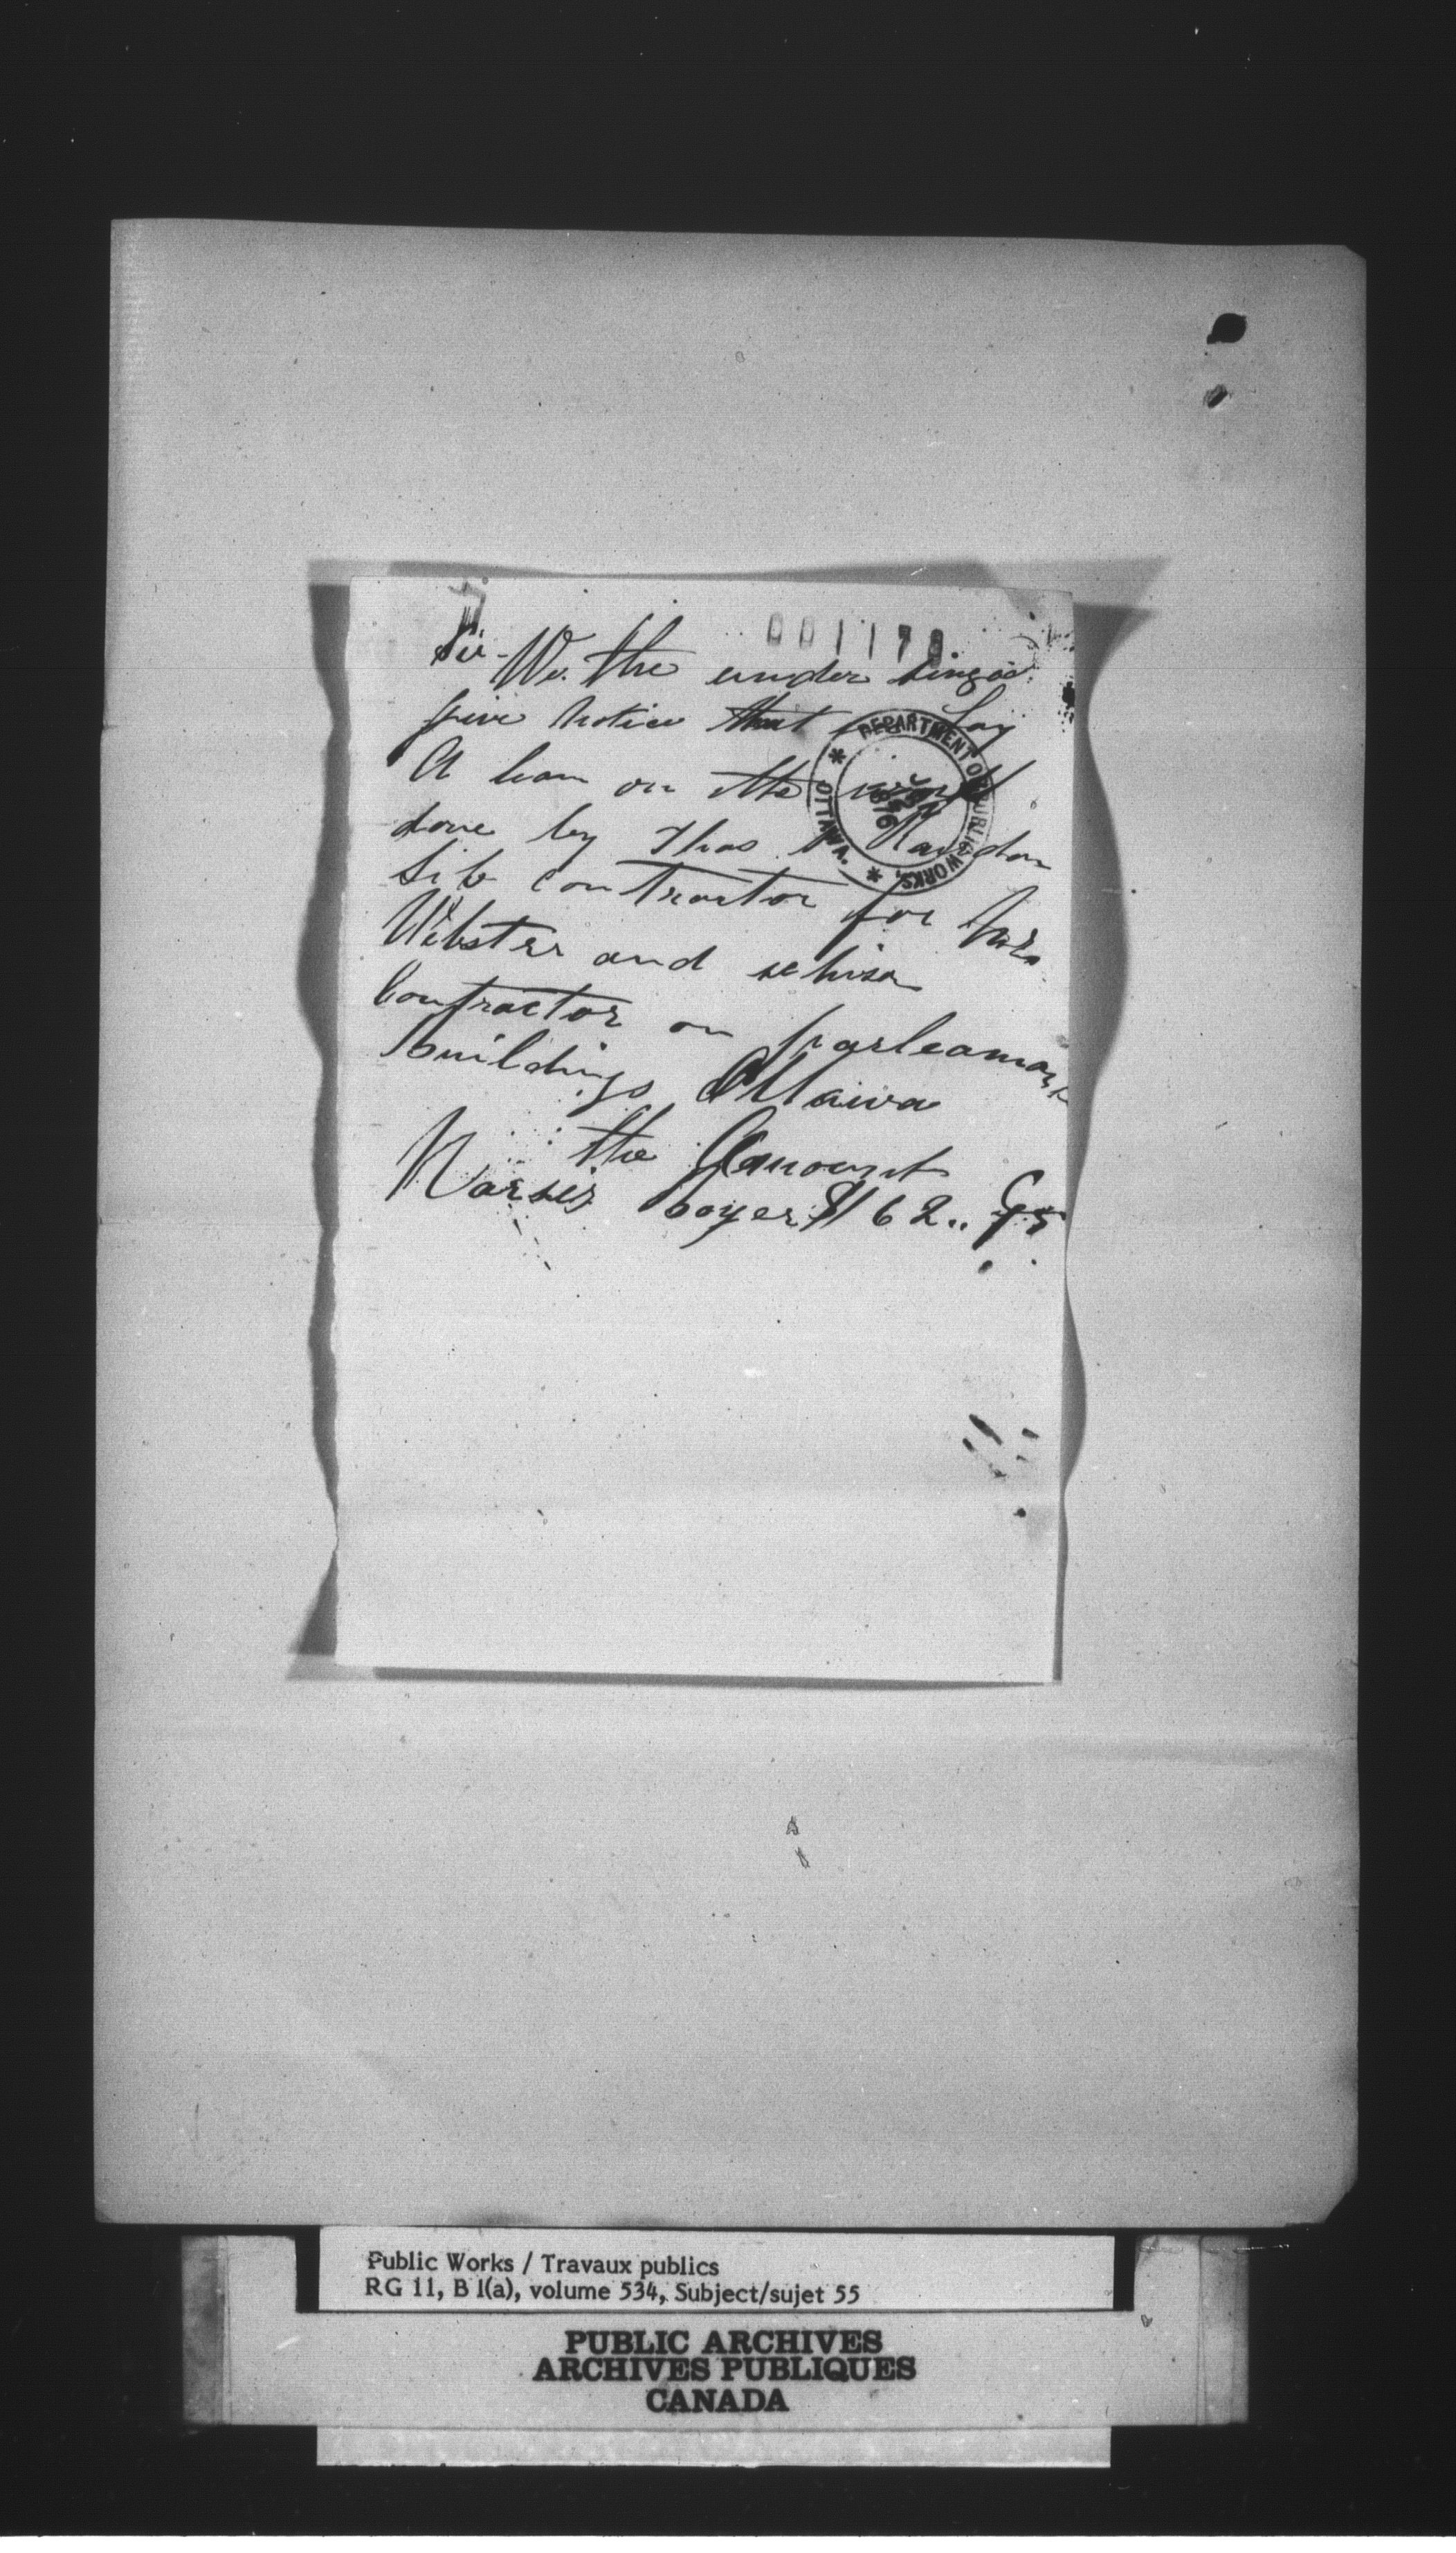 001170
Sir - We. the under singed
give notice that we Lay
A lean on the work
done by Thos Rawdon
Sib contractor for Mrs
Webster and
Contractor on parleament
buildings Ottawa
the Amount
Narsis boyer $162.. 75
DEPARTMENT OF PUBLIC WORKS,
* OTTAWA. *
Public Works / Travaux publics
RG 11, B 1(a), volume 534, Subject/sujet 55
PUBLIC ARCHIVES
ARCHIVES PUBLIQUES
CANADA